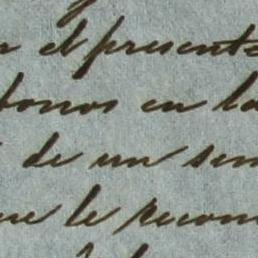 el presente
bonos en la
de un sen
le recon